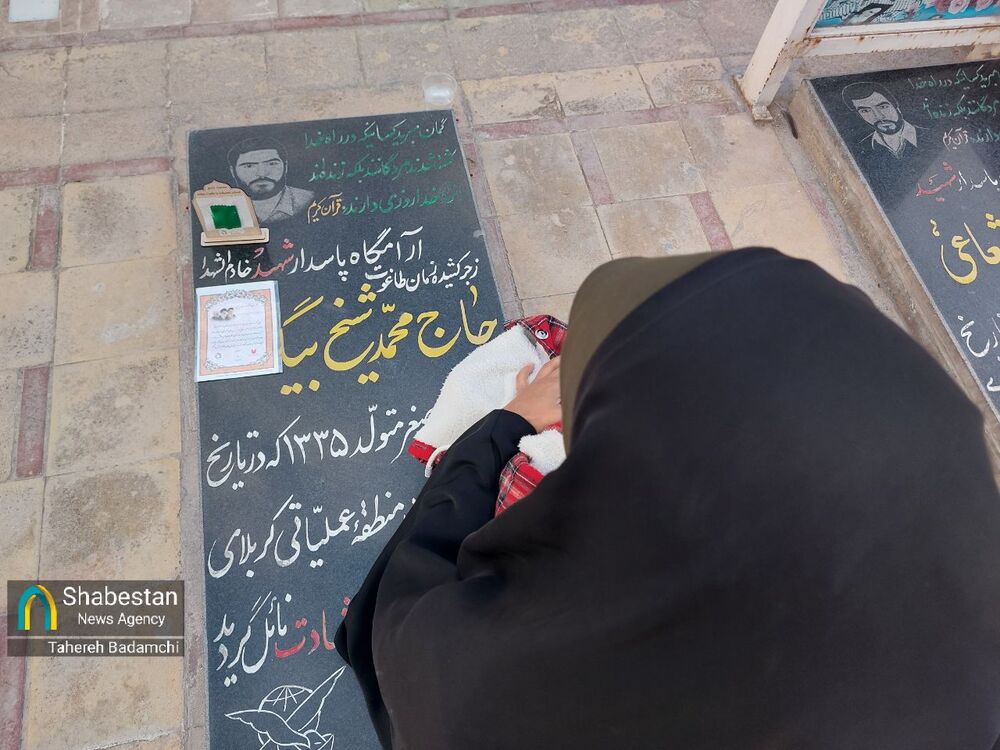 گمان مبرید کسانیکه در راه خدا
کشته شدند مردگانند بلکه زنده‌اند
نزد خدا روزی دارند قرآن کریم
آرامگاه پاسدار شهید خادم الشهدا
زجر کشیده زمان طاغوت
حاج محمد شیخ بیگ
متولد ۱۳۳۵ که در تاریخ
منطقه عملیاتی کربلای
شهادت نائل گردید
در راه خدا
قرآن کریم
پاسدار شهید
Shabestan
News Agency
Tahereh Badamchi